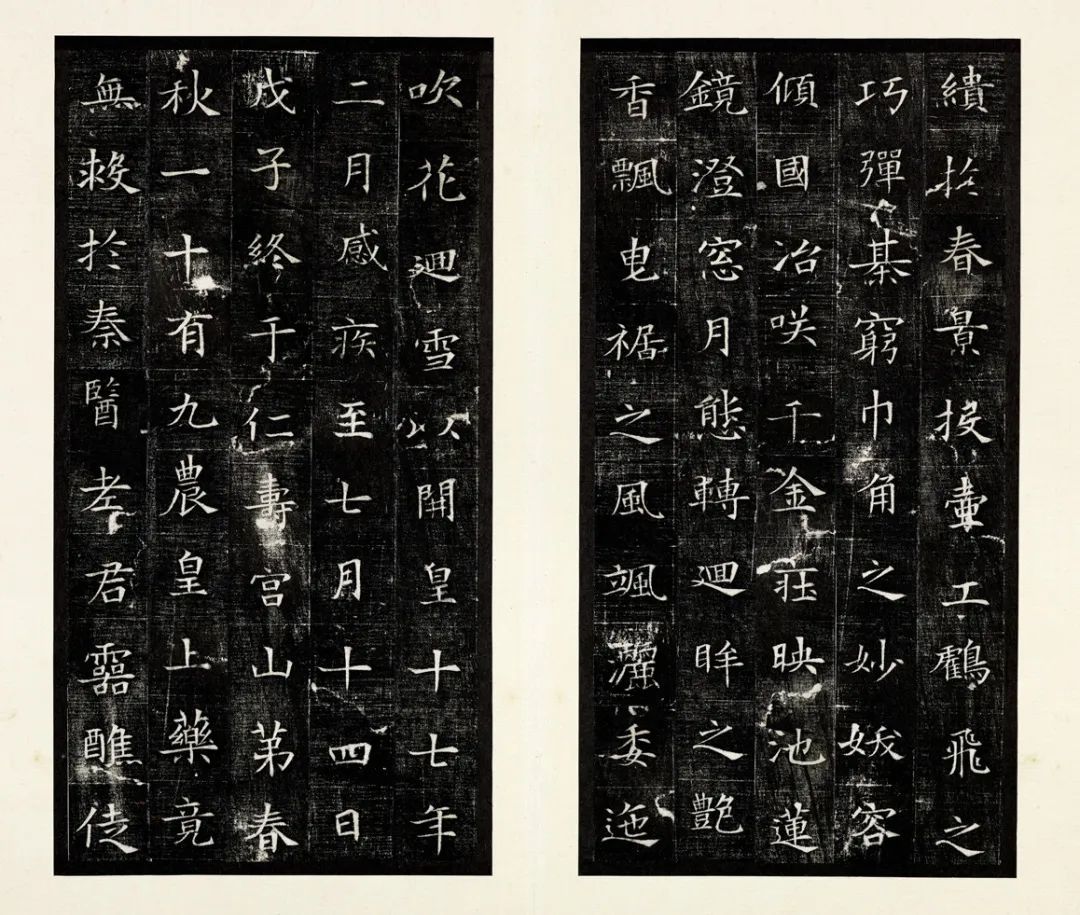 繢扵春景投壷工鸖飛之
巧彈棊窮巾角之妙妖容
傾國冶咲千金莊映池蓮
鏡澄窓月態轉廻眸之艶
香飄曳裾之風颯灑委迤
吹花廻雪以開皇十七年
二月感疾至七月十四日
戊子終于仁壽宫山第春
秋一十有九農皇上藥竟
無救扵秦醫老君靈醮徒